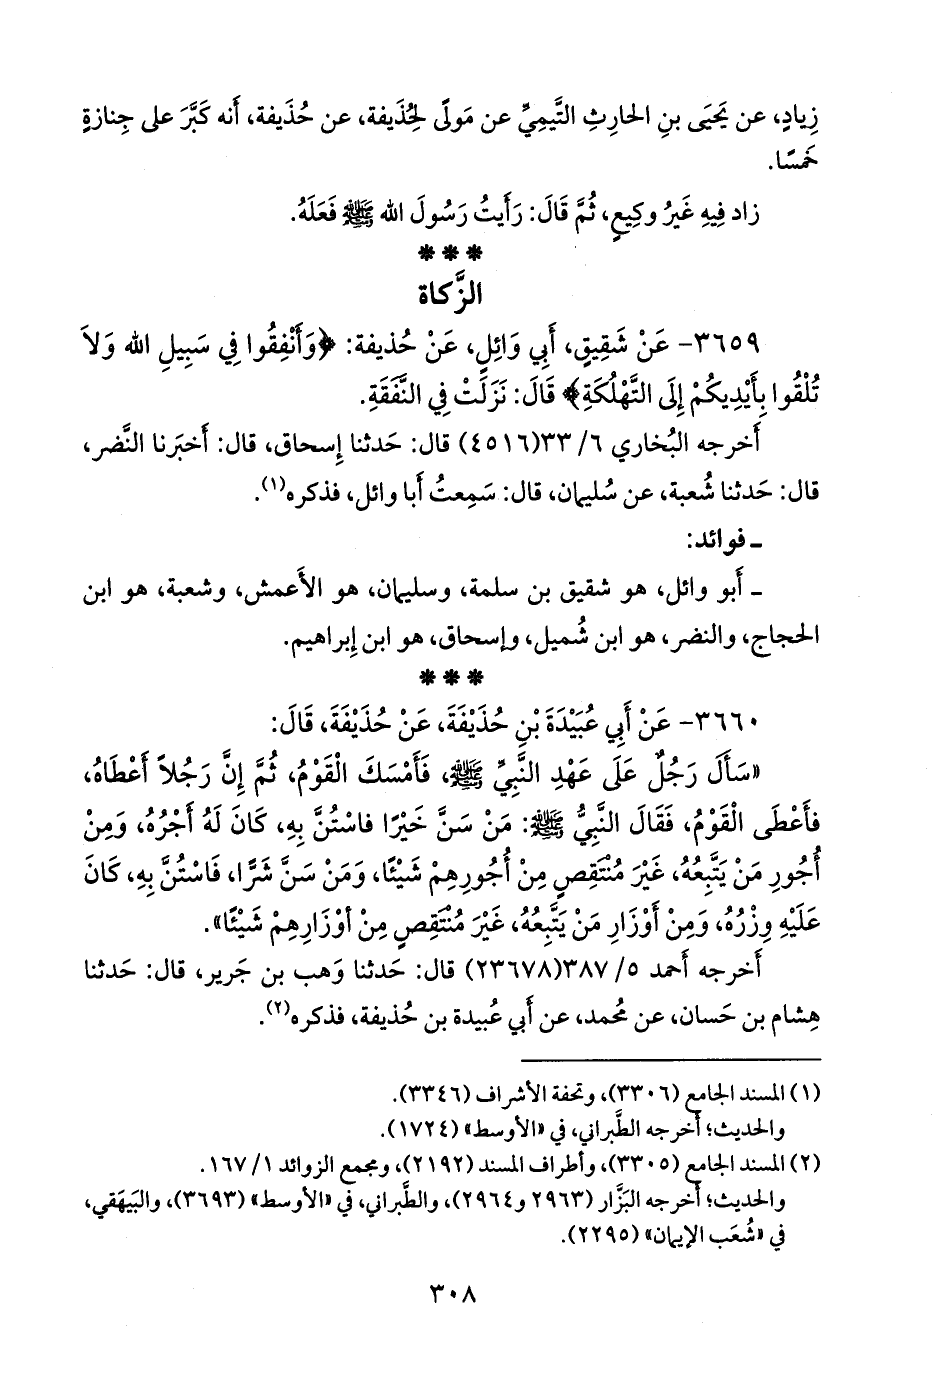 زِيادٍ، عن يَحيَى بنِ الحارِثِ التَّيمِيِّ عن مَولًى لِحُذَيفة، عن حُذَيفة، أَنه كَبَّرَ على جِنازةٍ
خَمسًا.
زاد فِيهِ غَيرُ وكِيعٍ، ثُمَّ قَالَ: رَأَيتُ رَسُولَ الله ﷺ فَعَلَهُ.
* * *
الزَّكاة
٣٦٥٩- عَنْ شَقِيقٍ، أَبِي وَائِلٍ، عَنْ حُذيفة: ﴿وَأَنْفِقُوا فِي سَبِيلِ الله وَلاَ
تُلْقُوا بِأَيْدِيكُمْ إِلَى التَّهْلُكَةِ﴾ قَالَ: نَزَلَتْ فِي النَّفَقَةِ.
أَخرجه البُخاري ٦/ ٣٣(٤٥١٦) قال: حَدثنا إِسحاق، قال: أَخبَرنا النَّضر،
قال: حَدثنا شُعبة، عن سُليمان، قال: سَمِعتُ أَبا وائل، فذكره(١).
ـ فوائد:
ـ أَبو وائل، هو شقيق بن سلمة، وسليمان، هو الأَعمش، وشعبة، هو ابن
الحجاج، والنضر، هو ابن شُميل، وإسحاق، هو ابن إِبراهيم.
* * *
٣٦٦٠- عَنْ أَبِي عُبَيْدَةَ بْنِ حُذَيْفَةَ، عَنْ حُذَيْفَةَ، قَالَ:
«سَأَلَ رَجُلٌ عَلَى عَهْدِ النَّبِيِّ ﷺ، فَأَمْسَكَ الْقَوْمُ، ثُمَّ إِنَّ رَجُلاً أَعْطَاهُ،
فَأَعْطَى الْقَوْمُ، فَقَالَ النَّبِيُّ ﷺ: مَنْ سَنَّ خَيْرًا فاسْتُنَّ بِهِ، كَانَ لَهُ أَجْرُهُ، وَمِنْ
أُجُورِ مَنْ يَتَّبِعُهُ، غَيْرَ مُنْتَقِصٍ مِنْ أُجُورِهِمْ شَيْئًا، وَمَنْ سَنَّ شَرًّا، فَاسْتُنَّ بِهِ، كَانَ
عَلَيْهِ وِزْرُهُ، وَمِنْ أَوْزَارِ مَنْ يَتَّبِعُهُ، غَيْرَ مُنْتَقِصٍ مِنْ أَوْزَارِهِمْ شَيْئًا».
أَخرجه أَحمد ٥/ ٣٨٧(٢٣٦٧٨) قال: حَدثنا وَهب بن جَرير، قال: حَدثنا
هِشام بن حَسان، عن مُحمد، عن أَبي عُبيدة بن حُذيفة، فذكره(٢).
(١) المسند الجامع (٣٣٠٦)، وتحفة الأشراف (٣٣٤٦).
والحديث؛ أخرجه الطَّبراني، في «الأوسط» (١٧٢٤).
(٢) المسند الجامع (٣٣٠٥)، وأطراف المسند (٢١٩٢)، ومجمع الزوائد ١/ ١٦٧.
والحديث؛ أخرجه البَزَّار (٢٩٦٣ و٢٩٦٤)، والطَّبراني، في «الأوسط» (٣٦٩٣)، والبَيهَقي،
في «شُعَب الإيمان» (٢٢٩٥).
٣٠٨